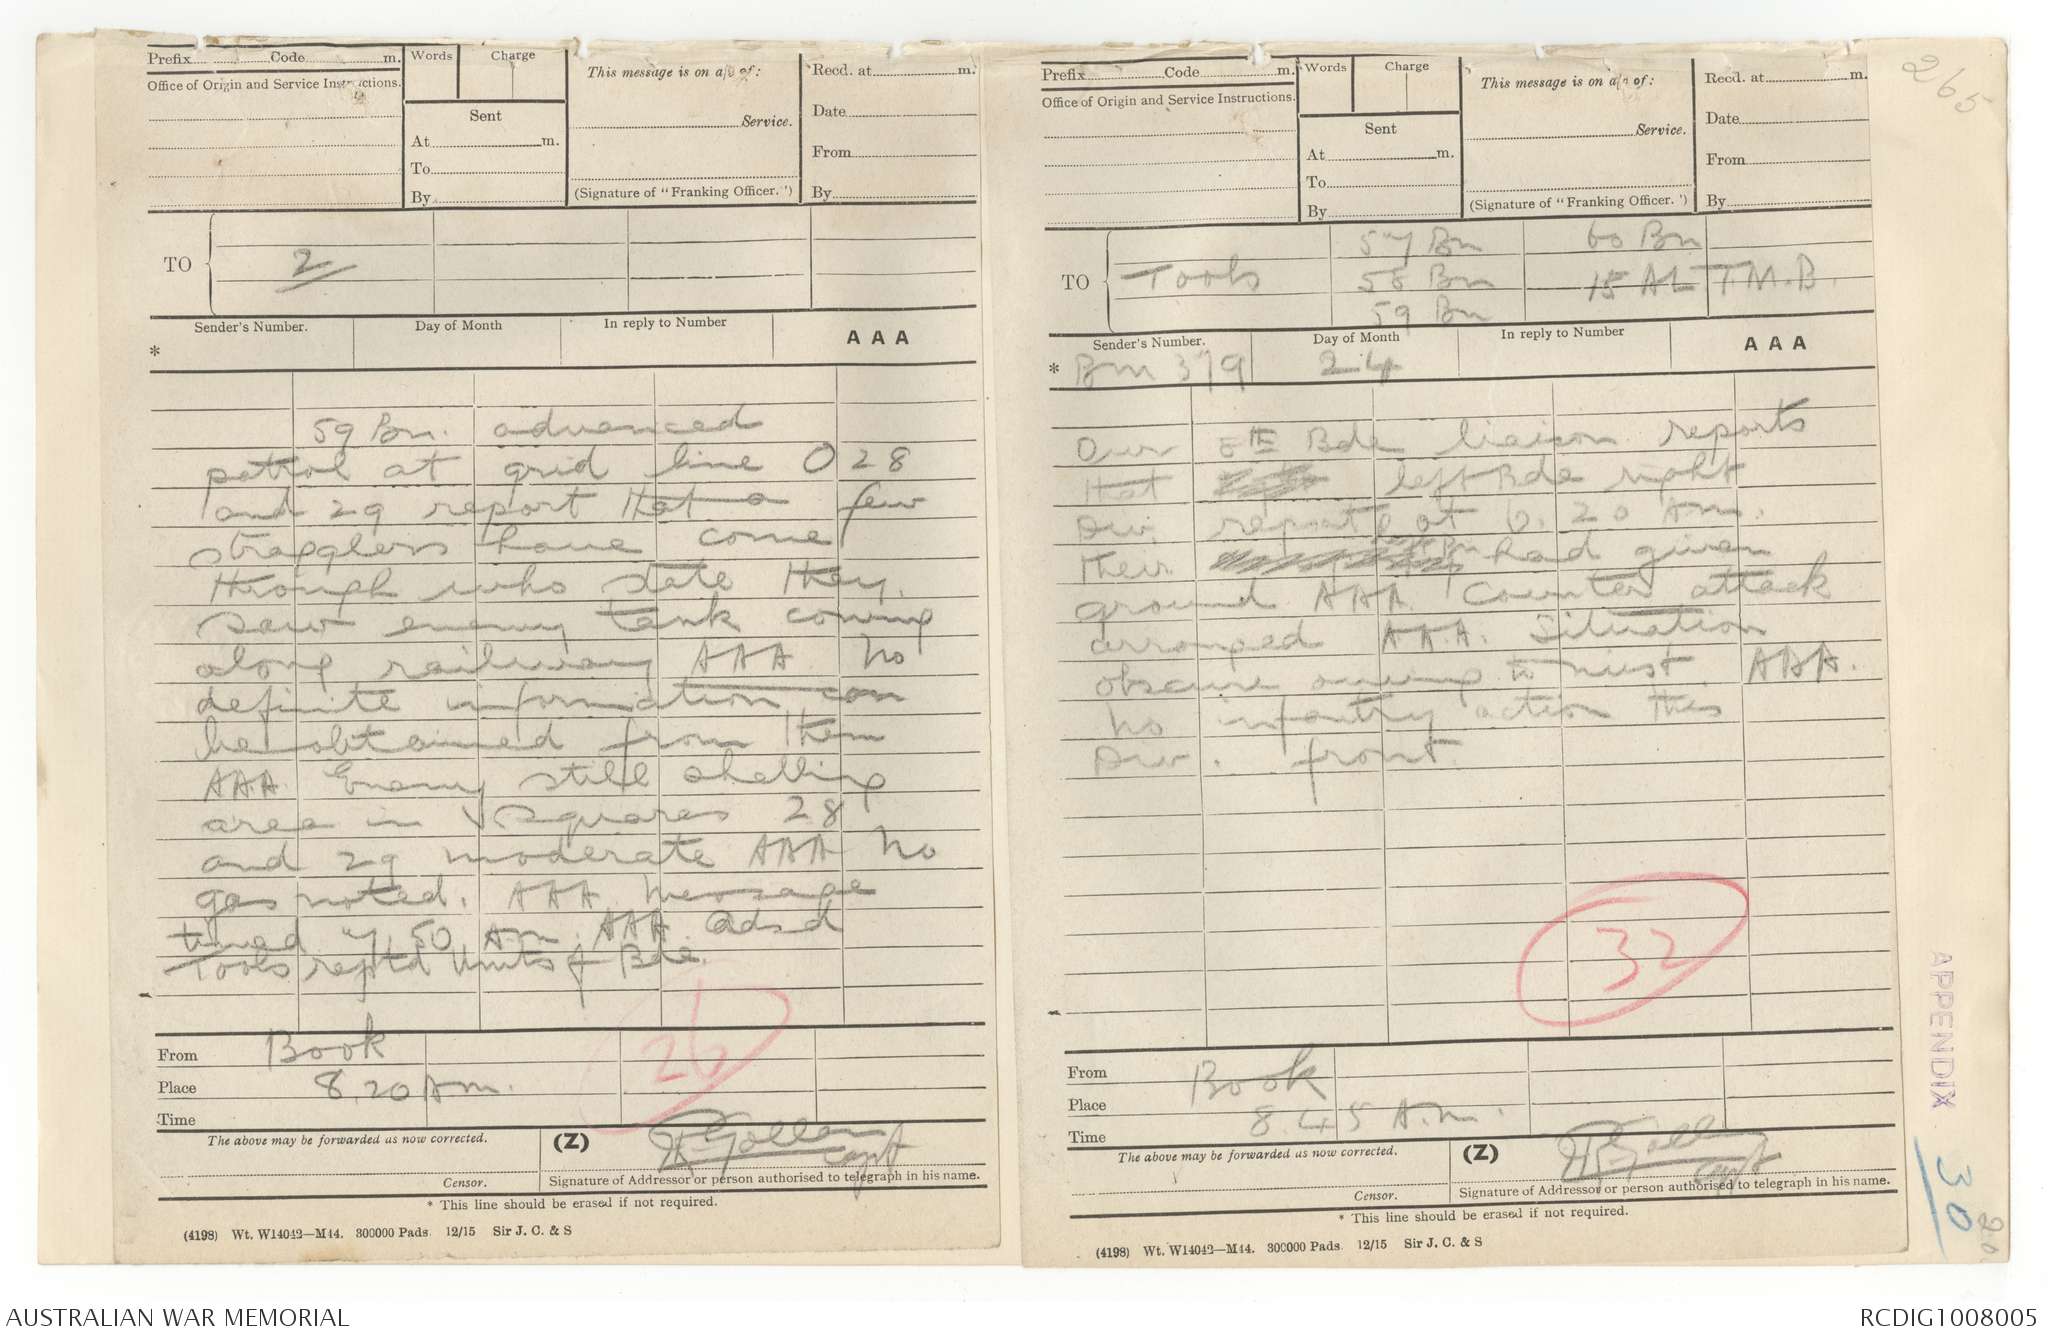 Prefix Code m.
Words Charge
This message is on a/c of:
Recd. at m.
Office of Origin and Service Instructions.
Sent
Date
Service.
At m.
From
To
(Signature of "Franking Officer.")
By
By
TO
2
Sender's Number. Day of Month In reply to Number AAA
*
59 Bn. advanced
patrol at grid line O 28
and 29 report that a few
stragglers have come
through who state they.
saw enemy tank coming
along railway AAA No
definite information can
be obtained from them
AAA Enemy still shelling
area in squares 28
and 29 moderate AAA No
gas noted. AAA Message
timed 7.50 Am. AAA adsd
Tools reptd Units of Bde.
26
From Book
Place 8.20 Am.
Time
The above may be forwarded as now corrected. (Z)
Capt
Censor. Signature of Addressor or person authorised to telegraph in his name.
* This line should be erased if not required.
(4198) Wt. W14042—M44. 300000 Pads 12/15 Sir J. C. & S
Prefix Code m.
Words Charge
This message is on a/c of:
Recd. at m.
Office of Origin and Service Instructions.
Sent
Date
Service.
At m.
From
To
(Signature of "Franking Officer.")
By
By
57 Bn 60 Bn
TO Tools 58 Bn 15 ALT.M.B.
59 Bn
Sender's Number. Day of Month In reply to Number AAA
* Bm 379 24
Our 8th Bde liaison reports
that left Bde right
Div. reports at 6.20 Am.
their had given
ground AAA. Counter attack
arranged AAA. Situation
obscure owing to mist. AAA.
No infantry action this
Div. front.
32
From Book
Place 8.45 A.m.
Time
The above may be forwarded as now corrected. (Z)
Capt
Censor. Signature of Addressor or person authorised to telegraph in his name.
* This line should be erased if not required.
(4198) Wt. W14042—M44. 300000 Pads 12/15 Sir J. C. & S
265
APPENDIX
30
20
AUSTRALIAN WAR MEMORIAL RCDIG1008005